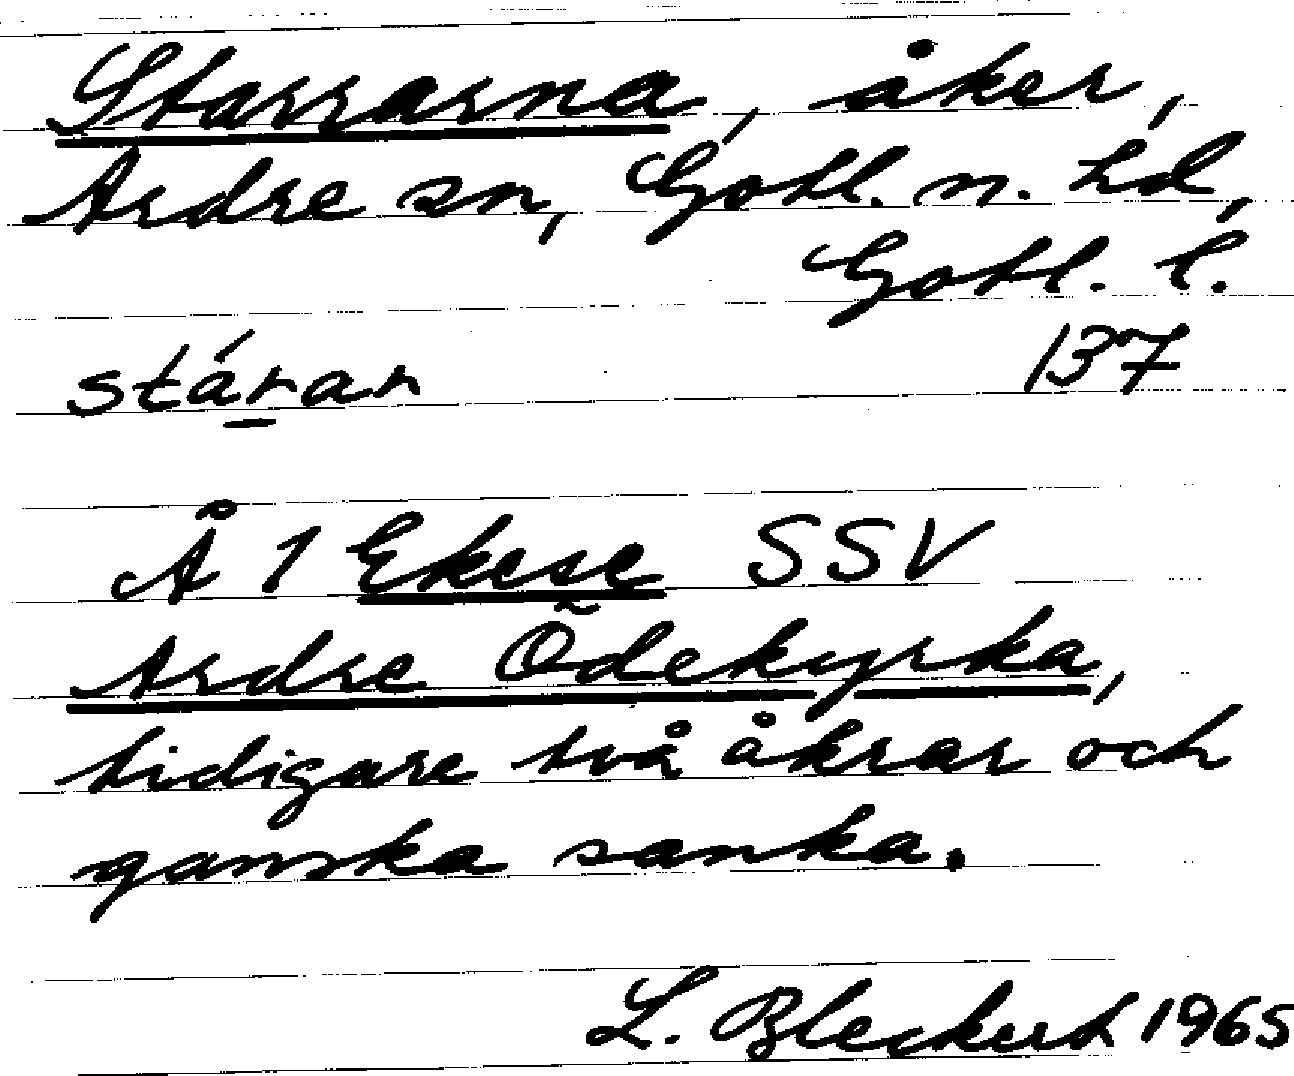 Starrarna, åker,
Ardre sn, Gotl. n. hd,
Gotl. l.
stárar 137
Å 1 Ekese SSV
Ardre Ödekyrka,
tidigare två åkrar och
ganska sanka.
L. Bleckert 1965